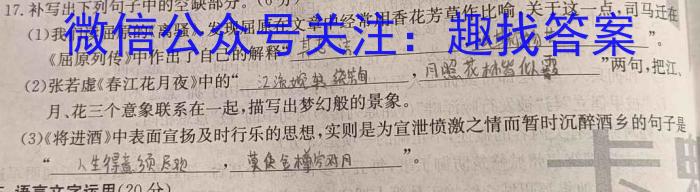 17.补写出下列句子中的空缺部分。(6分)
(1)我们读屈原的《离骚》,发现屈原在文章中经常用香花芳草作比喻,关于这一点,司马迁在
微信公众号关注:趣找答案
《屈原列传》中作出了自己的解释
(2)张若虚《春江花月夜》中的“江流宛转绕芳甸,月照花林皆似霰”两句,把江、
月、花三个意象联系在一起,描写出梦幻般的景象。
(3)《将进酒》中表面宣扬及时行乐的思想,实则是为宣泄愤激之情而暂时沉醉酒乡的句子是
“人生得意须尽欢,莫使金樽空对月”。
语言文字运用(20分)